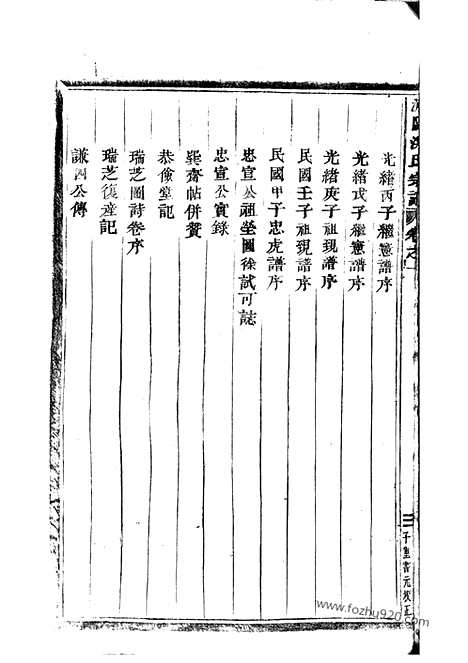 氏宗譜 卷之一
光緒丙子繼憲譜序
光緒戊子繼憲譜序
光緒庚子祖現譜序
民國壬子祖現譜序
民國甲子忠虎譜序
忠宣公祖塋圖徐試可誌
忠宣公實錄
巽齋帖併贊
恭儉堂記
瑞芝圖詩卷序
瑞芝復產記
謙四公傳
www.fozhu920.com